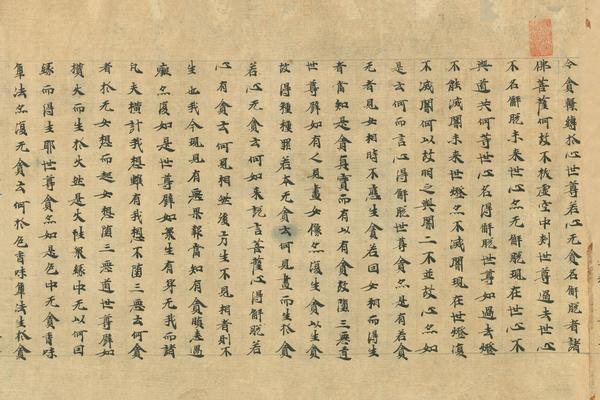 令貪繫縛於心世尊若心无貪名解脫者諸
佛菩薩何故不拔虛空中刺世尊過去世心
不名解脫未來世心亦无解脫現在世心不
與道共何等世心名得解脫世尊如過去燈
不能滅闇未來世燈亦不滅闇現在世燈復
不滅闇何以故明之與闇二不並故心亦如
是云何而言心得解脫世尊貪亦是有若貪
无者見女相時不應生貪若因女相而得生
者當知是貪真實而有以有貪故墮三惡道
世尊譬如有人見畫女像亦復生貪以生貪
故得種種罪若本无貪云何見畫而生於貪
若心无貪云何如來說言菩薩心得解脫若
心有貪云何見相然後方生不見相者則不
生也我今現見有惡果報當知有貪瞋恚愚
癡亦復如是世尊譬如眾生有身无我而諸
凡夫橫計我想雖有我想不墮三惡云何貪
者於无女想而起女想墮三惡道世尊譬如
攢火而生於火然是火性眾緣中无以何因
緣而得生耶世尊貪亦如是色中无貪香味
觸法亦復无貪云何於色香味觸法生於貪